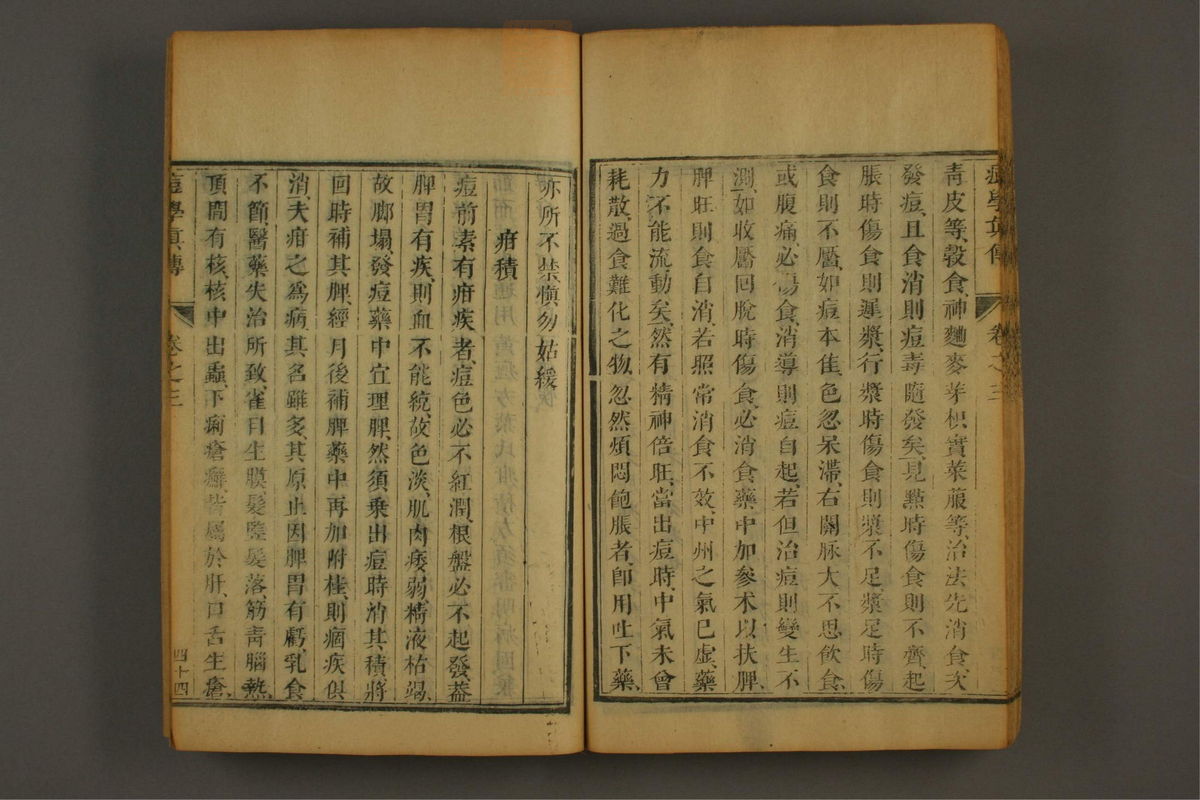 痘學真傳
卷之三
青皮等穀食神麯麥芽枳實萊菔等治法先消食次
發痘且食消則痘毒隨發矣見㸃時傷食則不齊起
脹時傷食則遲漿行漿時傷食則漿不足漿足時傷
食則不靨如痘本佳色忽呆滯右關脉大不思飲食
或腹痛必傷食消導則痘自起若但治痘則變生不
測如收靨回脫時傷食必消食藥中加參术以扶脾
脾旺則食自消若照常消食不效中州之氣已虛藥
力不能流動矣然有精神倍旺當出痘時中氣未曾
耗散過食難化之物忽然煩悶飽脹者卽用吐下藥
亦所不禁愼勿姑緩
疳積
痘前素有疳疾者痘色必不紅潤根盤必不起發蓋
脾胃有疾則血不能統故色淡肌肉痿弱精液枯竭
故脚塌發痘藥中宜理脾然須乗出痘時消其積將
回時補其脾經月後補脾藥中再加附桂則痼疾俱
消夫疳之爲病其名雖多其原止因脾胃有虧乳食
不節醫藥失治所致雀目生膜髮豎髮落筋青腦熱
項間有核核中出蟲下痢瘡癬皆屬於肝口舌生瘡
痘學真傳
卷之三
四十四